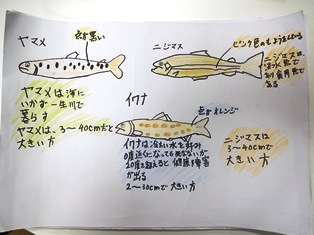 ヤマメ
点が黒い
ヤマメは海に
いかず一生川で
暮らす
ヤマメは、3〜40cmだと
大きい方
ニジマス
ピンク色の
ニジマスは
淡水魚で
ある
ニジマスは
3〜40cmで
大きい方
イワナ
点がオレンジ
イワナは冷たい水を好み
0度近くになっても死なないが
20度を超えると健康障害
が出る
2〜30cmで大きい方